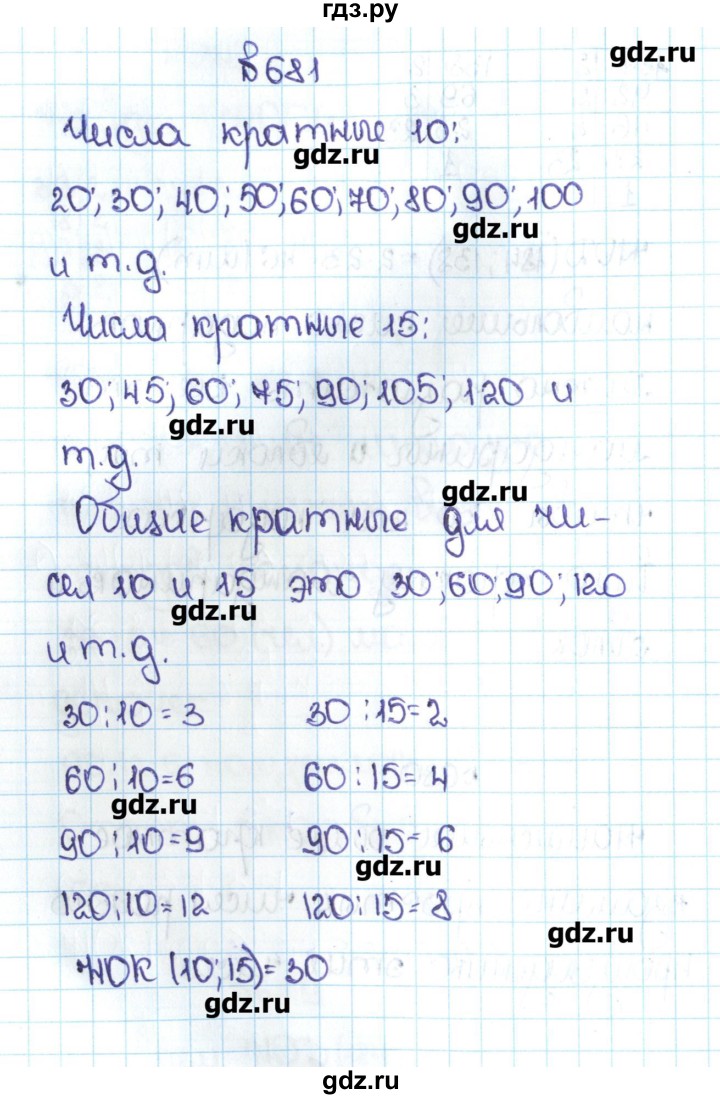 гдз.ру
gdz.ru
№681
Числа кратные 10:
gdz.ru
20; 30; 40; 50; 60; 70; 80; 90; 100
gdz.ru
и т.д.
Числа кратные 15:
30; 45; 60; 75; 90; 105; 120 и
gdz.ru
т.д.
gdz.ru
Общие кратные для чи-
сел 10 и 15 это 30; 60; 90; 120
gdz.ru
и т.д.
30:10=3 30:15=2
60:10=6 60:15=4
gdz.ru
90:10=9 90:15=6
gdz.ru
120:10=12 120:15=8
gdz.ru
НОК (10;15)=30
gdz.ru
gdz.ru